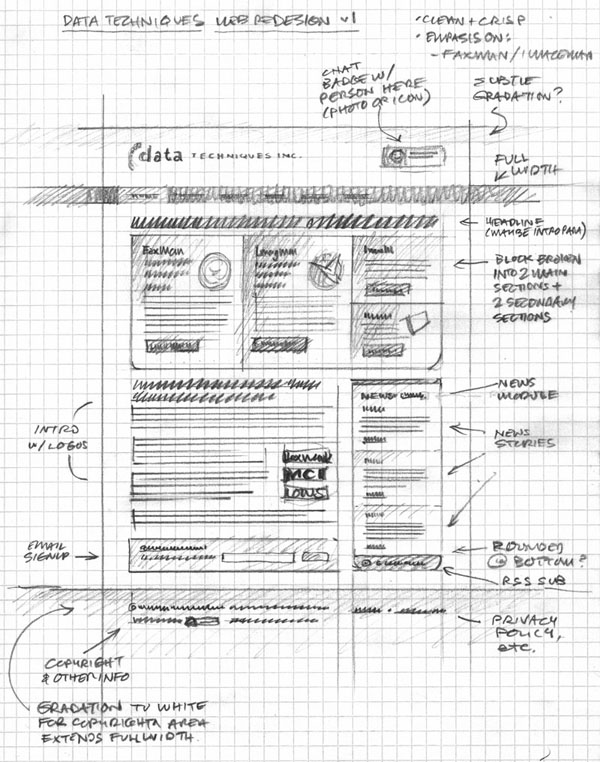 DATA TECHNIQUES WEB REDESIGN v1
• CLEAN + CRISP
• EMPASIS ON:
- FAXMAN / IMAGEMAN
CHAT
BADGE W/
PERSON HERE
(PHOTO OR ICON)
SUBTLE
GRADATION?
data TECHNIQUES INC.
FULL
WIDTH
HOME
HEADLINE
(MAYBE INTRO PARA)
FaxMan
BLOCK BROKEN
INTO 2 MAIN
SECTIONS +
2 SECONDARY
SECTIONS
NEWS
MODULE
NEWS
INTRO
W/ LOGOS
NEWS
STORIES
MCI
EMAIL
SIGNUP
ROUNDED
@ BOTTOM?
RSS SUB
PRIVACY
POLICY,
etc.
COPYRIGHT
& OTHER INFO
GRADATION TO WHITE
FOR COPYRIGHTA AREA
EXTENDS FULL WIDTH.